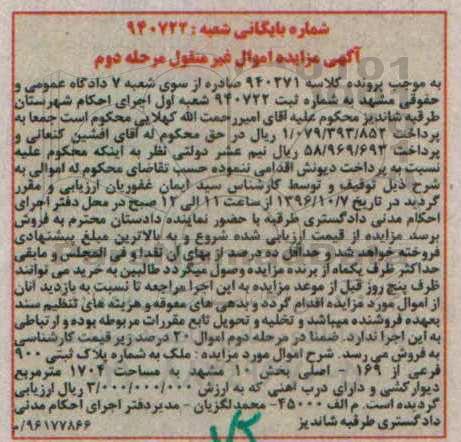 شماره بایگانی شعبه : ۹۴۰۷۲۲
آگهی مزایده اموال غیر منقول مرحله دوم
به موجب پرونده کلاسه ۹۴۰۳۷۱ صادره از سوی شعبه ۷ دادگاه عمومی و
حقوقی مشهد به شماره ثبت ۹۴۰۷۲۲ شعبه اول اجرای احکام شهرستان
طرقبه شاندیز محکوم علیه آقای امیررحمت الله کهلایی محکوم است جمعا به
پرداخت ۱/۰۷۹/۳۹۳/۸۵۲ ریال در حق محکوم له آقای افشین کنعانی و
پرداخت ۵۸/۹۶۹/۶۹۳ ریال نیم عشر دولتی نظر به اینکه محکوم علیه
نسبت به پرداخت دیونش اقدامی ننموده حسب تقاضای محکوم له اموالی به
شرح ذیل توقیف و توسط کارشناس سید ایمان غفوریان ارزیابی و مقرر
گردید در تاریخ ۱۳۹۶/۱۰/۷ ازساعت ۱۱ الی ۱۲ صبح در محل دفتر اجرای
احکام مدنی دادگستری طرقبه با حضور نماینده دادستان محترم به فروش
برسد مزایده از قیمت ارزیابی شده شروع و به بالاترین مبلغ پیشنهادی
فروخته خواهد شد و حداقل ده درصد از بهای آن نقدا و فی المجلس و مابقی
حداکثر ظرف یکماه از برنده مزایده وصول میگردد طالبین به خرید می توانند
ظرف پنج روز قبل از موعد مزایده به این اجرا مراجعه تا نسبت به بازدید آنان
از اموال مورد مزایده اقدام گردد و بدهی های معوقه و هزینه های تنظیم سند
بعهده فروشنده میباشد و تخلیه و تحویل تابع مقررات مربوطه بوده و ارتباطی
به این اجرا ندارد. ضمنا در مرحله دوم اموال ۲۰ درصد زیر قیمت کارشناسی
به فروش می رسد. شرح اموال مورد مزایده : ملک به شماره پلاک ثبتی ۹۰۰
فرعی از ۱۶۹ - اصلی بخش ۱۰ مشهد به مساحت ۱۷۰۴ مترمربع
دیوارکشی و دارای درب آهنی که به ارزش ۳/۰۰۰/۰۰۰/۰۰۰ ریال ارزیابی
گردیده است. م الف ۴۵۰۰۰- محمدلگزیان - مدیردفتر اجرای احکام مدنی
دادگستری طرقبه شاندیز
۹۶۱۷۷۸۶۶/م